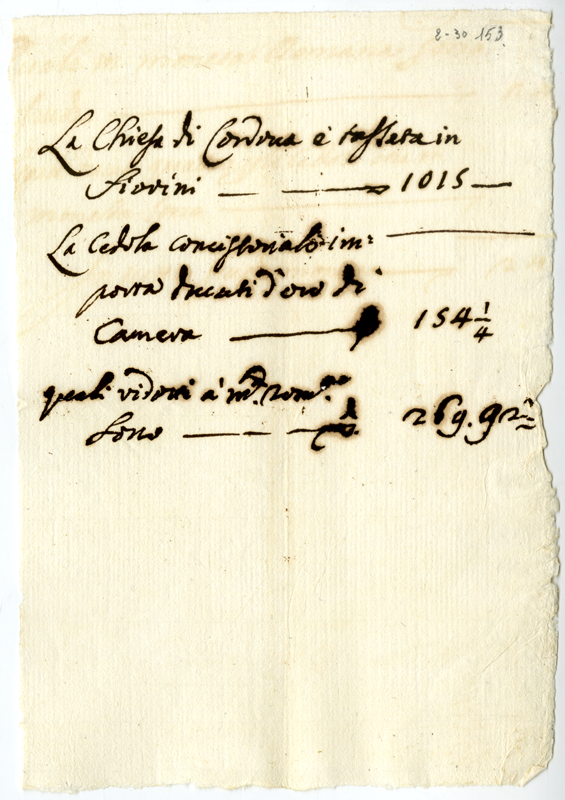 2-30 153.
La Chiesa di Cordova è tassata in
Fiorini — 1015 —
La Cedola concistoriale im:
porta ducati d'oro di
Camera — 154 1/4
quali ridotti à m.ta rom.na
sono — 269.92